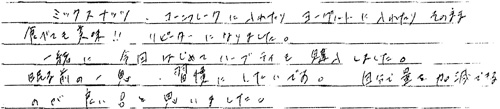 ミックスナッツ、コーンフレークに入れたりヨーグルトに入れたりそのまま
食べても美味!! リピーターになりました。
一緒に今回はじめてハーブティも購入しました。
眠る前の一息、習慣にしたいである。自分で量を加減できる
のが良い点と思いました。